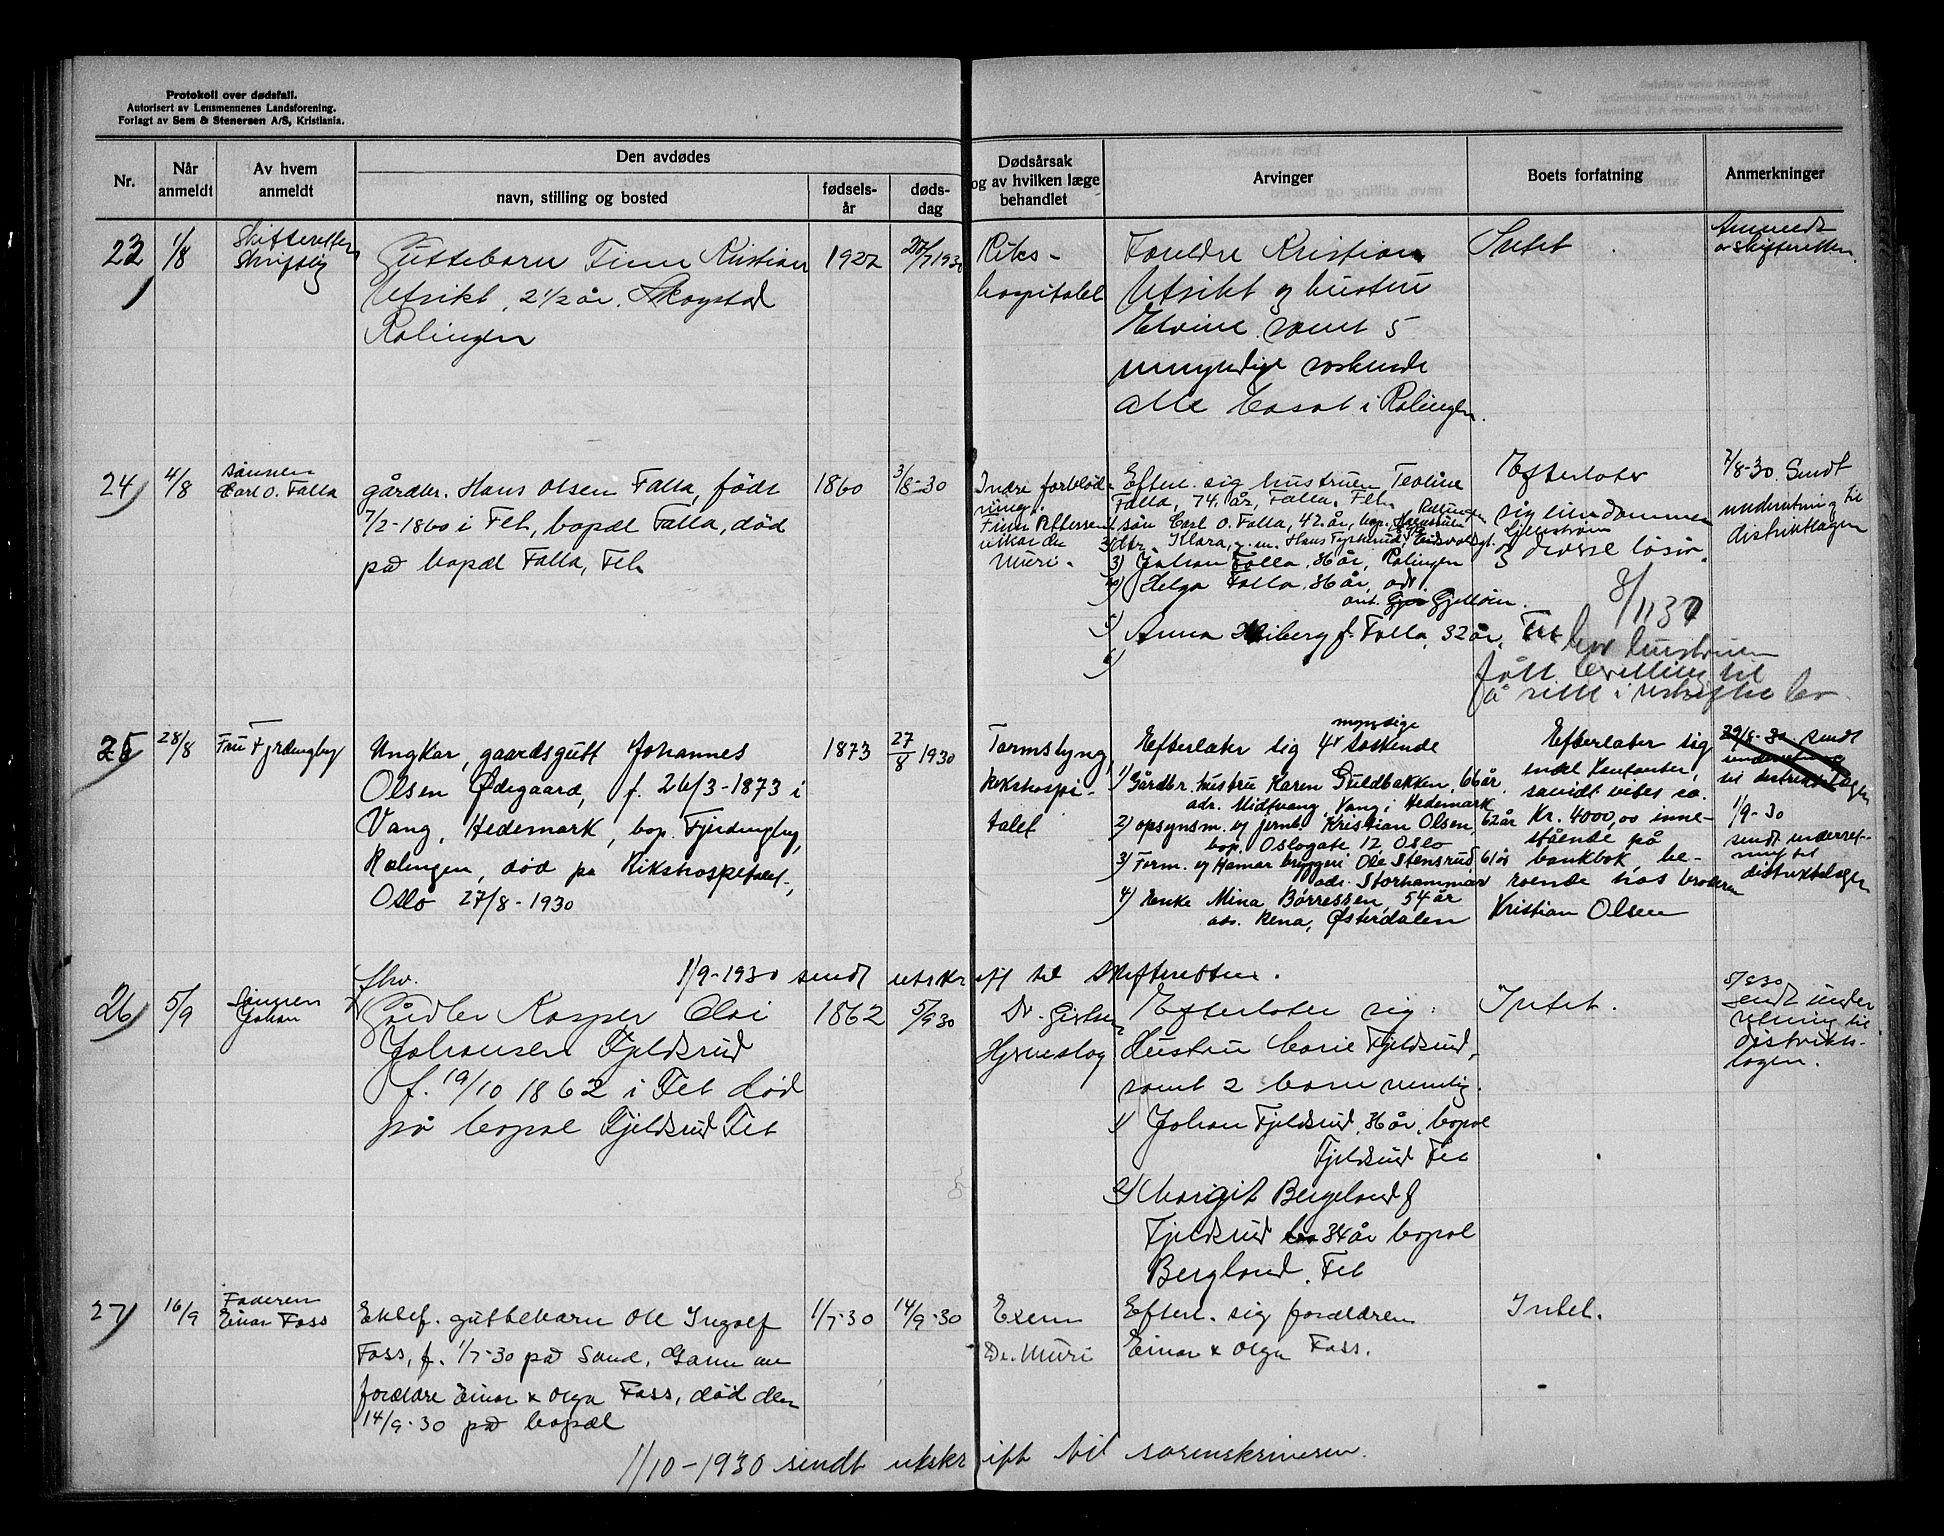 Protokoll over dødsfall.
Autorisert av Lensmennenes Landsforening.
Forlagt av Sem & Stenersen A/S, Kristiania.
Nr.
Når anmeldt
Av hvem anmeldt
Den avdødes
navn, stilling og bosted
fødsels-år
døds-dag
Dødsårsak og av hvilken læge behandlet
Arvinger
Boets forfatning
Anmerkninger
23
1/8
Skifteretten
Skriftlig
Guttebarn Finn Kristian
Utsikt, 2 1/2 år, Skogstad
Rælingen
1927
/7 1930
Riks-
hospitalet
Foreldre Kristian
Utsikt og hustru
Elvine samt 5
umyndige søskende
alle bosat i Rælingen.
Intet
Anmeldt
av Skifteretten.
24
4/8
sønnen
Carl O. Falla
gårdbr. Hans Olsen Falla, født
7/2-1860 i Fet, bopæl Falla, død
på bopæl Falla, Fet
1860
3/8-30
Indre forblød-
ning.
Finn Pettersen
vikar for
Muri.
Efterl. sig hustruen Teoline
Falla, 74 år, Falla, Fet
søn Carl O. Falla, 42 år, bop. Rælingen
3) dtr. Klara, g. m. Hans
3) Johan Falla, 36 år, Rælingen
4) Helga Falla, 36 år, adr.
Gjelleråsen.
5) Anna Wiberg f. Falla, 32 år, Fet
6)
Efterlater
sig eiendommen
Lillestrøm
og diverse løsøre
8/11 30
har hustruen
fått bevilling til
å sitte i uskiftet bo.
7/8-30. Sendt
underretning til
distriktslagen
25
28/8
Fru Fjerdingby
Ungkar, gaardsgutt Johannes
Olsen Ødegaard, f. 26/3-1873 i
Vang, Hedemark, bop. Fjerdingby,
Rælingen, død på Rikshospitalet,
Oslo 27/8-1930
1873
27/8 1930
Tarmslyng,
Rikshospi-
talet
Efterlater sig 4 myndige søskende
1) Gårdbr. hustru Karen Guldbakken, 66 år,
adr. Midtvang, Vang i Hedemark
2) opsynsm. v/ jernb. Kristian Olsen, 62 år
bop. Oslogate 12, Oslo
3) Form. v/ Hamar bryggeri Ole Stensrud, 61 år
adr. Storhammar
4) Enke Mina Børressen, 54 år
adr. Rena, Østerdalen
Efterlater sig
endel kontanter,
savidt vites ca.
Kr. 4000,00 inne-
stående på
bankbok, be-
roende hos broderen
Kristian Olsen
29/8-30 sendt
underretning
til distriktslagen
1/9-30
sendt underret-
ning til
distriktslagen
1/9-1930 sendt utskrift til skifteretten.
26
5/9
Sønnen
Johan
fhv.
Gårdbr Kasper Olai
Johansen Fjeldsrud
f. 19/10 1862 i Fet død
på bopæl Fjeldsrud Fet
1862
5/9 30
Dr. Giertsen
Hjerneslag
Efterlater sig:
Hustru Marie Fjeldsrud,
samt 2 barn nemlig.
1) Johan Fjeldsrud, 36 år, bopæl
Fjeldsrud Fet
2) Margit Bergelund f
Fjeldsrud 34 år bopæl
Berglund, Fet
Intet.
5/9 30
sendt under
retning til
distrikts-
lagen.
27
16/9
Faderen
Einar Foss
Ektef. guttebarn Ole Ingolf
Foss, f. 1/7-30 på Sand, Gann av
forældre Einar & Olga Foss, død den
14/9-30 på bopæl
1/7-30
14/9-30
Exem
Dr. Muri
Efterl. sig forældrene
Einar & Olga Foss.
Intet.
1/10-1930 sendt utskrift til sorenskriveren.